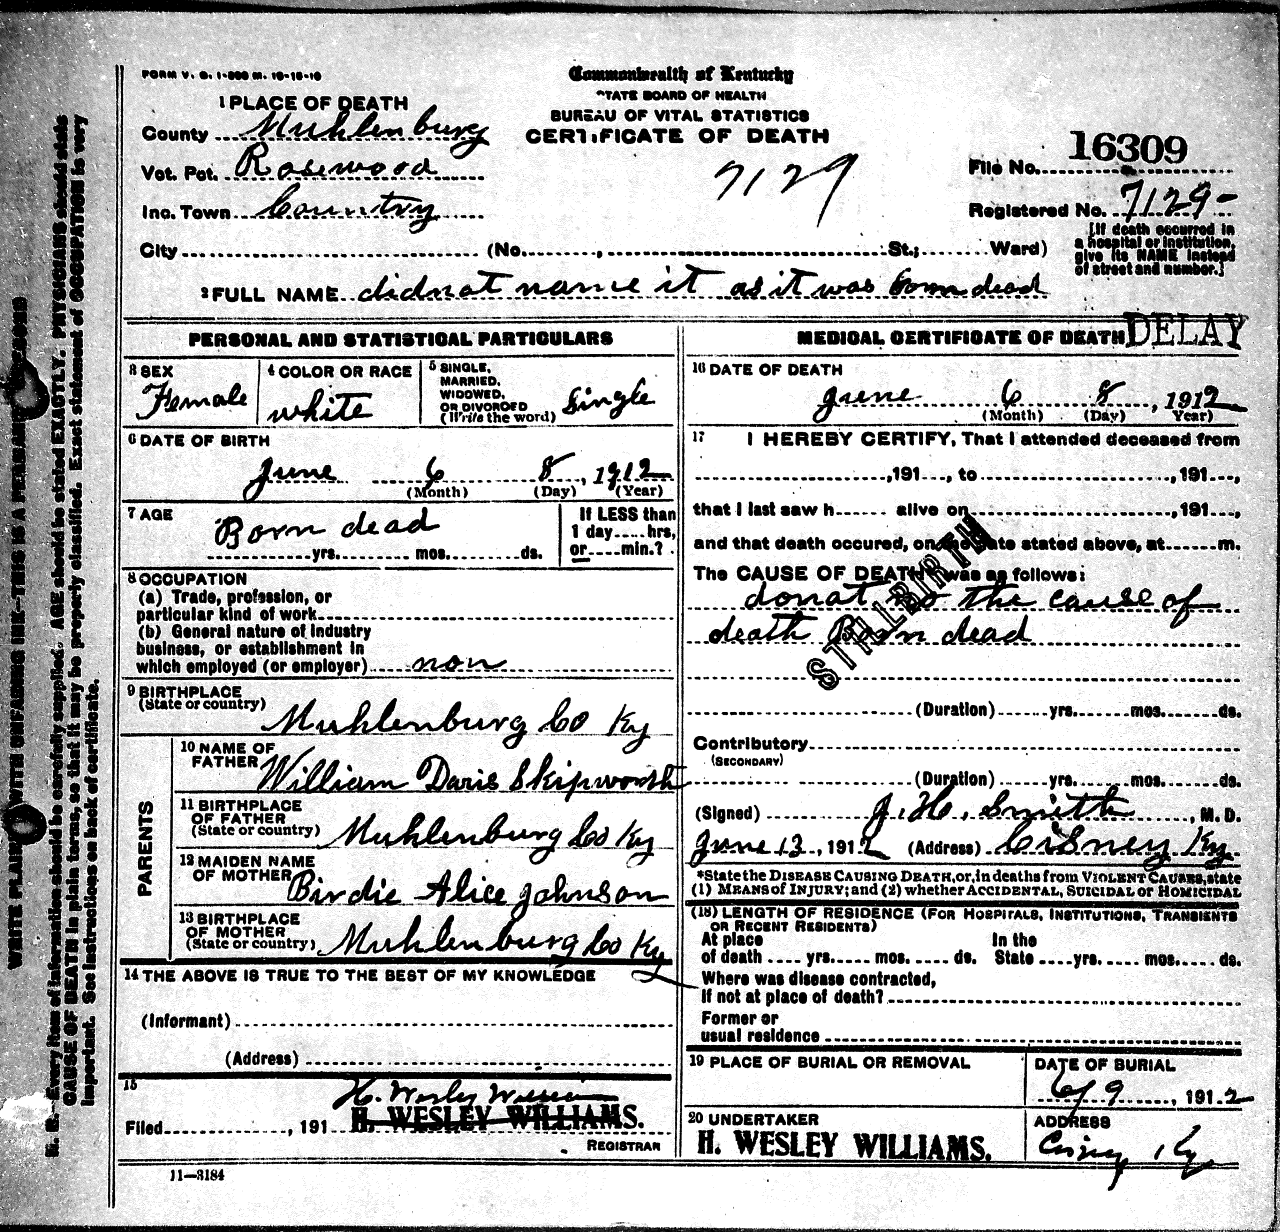 FORM V. S. 1-500 M. 10-18-10
Commonwealth of Kentucky
STATE BOARD OF HEALTH
BUREAU OF VITAL STATISTICS
CERTIFICATE OF DEATH
1 PLACE OF DEATH
County Muhlenburg
Vot. Pct. Rosewood
Inc. Town Country
City (No. , St.; Ward)
7129
File No. 16309
Registered No. 7129-
[If death occurred in a hospital or institution, give its NAME instead of street and number.]
2 FULL NAME didnat name it as it was born dead
PERSONAL AND STATISTICAL PARTICULARS
3 SEX Female
4 COLOR OR RACE white
5 SINGLE, MARRIED, WIDOWED, OR DIVORCED (Write the word) Single
6 DATE OF BIRTH
June 6 8, 1912
(Month) (Day) (Year)
7 AGE Born dead
yrs. mos. ds.
If LESS than 1 day hrs, or min.?
8 OCCUPATION
(a) Trade, profession, or
particular kind of work
(b) General nature of industry
business, or establishment in
which employed (or employer) non
9 BIRTHPLACE
(State or country) Muhlenburg Co Ky
PARENTS
10 NAME OF FATHER William Daris Skipworth
11 BIRTHPLACE OF FATHER (State or country) Muhlenburg Co Ky
12 MAIDEN NAME OF MOTHER Birdie Alice Johnson
13 BIRTHPLACE OF MOTHER (State or country) Muhlenburg Co Ky
14 THE ABOVE IS TRUE TO THE BEST OF MY KNOWLEDGE
(Informant)
(Address)
15
H. Wesley Williams
Filed , 191 H. WESLEY WILLIAMS.
REGISTRAR
11—3184
MEDICAL CERTIFICATE OF DEATH DELAY
16 DATE OF DEATH
June 6 8, 1912
(Month) (Day) (Year)
17 I HEREBY CERTIFY, That I attended deceased from
,191 , to ,191 ,
that I last saw h alive on ,191 ,
and that death occured, on the date stated above, at m.
The CAUSE OF DEATH was as follows:
donat no the cause of
death Born dead
STILLBIRTH
(Duration) yrs. mos. ds.
Contributory
(SECONDARY)
(Duration) yrs. mos. ds.
(Signed) J. H. Smith, M. D.
June 13, 1912 (Address) Cisney Ky.
*State the DISEASE CAUSING DEATH, or, in deaths from VIOLENT CAUSES, state
(1) MEANS OF INJURY; and (2) whether ACCIDENTAL, SUICIDAL OR HOMICIDAL
(18) LENGTH OF RESIDENCE (FOR HOSPITALS, INSTITUTIONS, TRANSIENTS
OR RECENT RESIDENTS)
At place of death yrs. mos. ds. In the State yrs. mos. ds.
Where was disease contracted,
If not at place of death?
Former or
usual residence
19 PLACE OF BURIAL OR REMOVAL
DATE OF BURIAL
6/9, 1912
20 UNDERTAKER
H. WESLEY WILLIAMS.
ADDRESS
Cisney Ky
WRITE PLAINLY WITH UNFADING INK—THIS IS A PERMANENT RECORD
N. B.—Every item of information should be carefully supplied. AGE should be stated EXACTLY. PHYSICIANS should state
CAUSE OF DEATH in plain terms, so that it may be properly classified. Exact statement of OCCUPATION is very
important. See instructions on back of certificate.